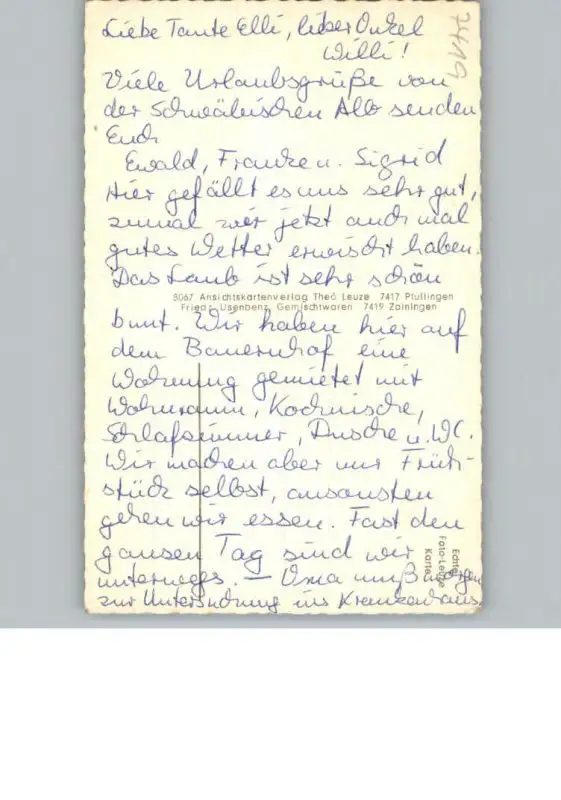 Liebe Tante Elli, lieber Onkel
Willi!
7419
Viele Urlaubsgrüße von
der Schwäbischen Alb senden
Euch
Ewald, Frauke u. Sigrid
Hier gefällt es uns sehr gut,
zumal wir jetzt auch mal
gutes Wetter erwischt haben.
Das Laub ist sehr schön
5067 Ansichtskartenverlag Theo Leuze 7417 Pfullingen
Friedr. Usenbenz, Gemischtwaren 7419 Zainingen
bunt. Wir haben hier auf
dem Bauernhof eine
Wohnung gemietet mit
Wohnraum, Kochnische,
Schlafzimmer, Dusche u. WC.
Wir machen aber nur Früh-
stück selbst, ansonsten
gehen wir essen. Fast den
ganzen Tag sind wir
unterwegs. — Oma muß morgen
zur Untersuchung ins Krankenhaus
Echte
Foto-Leuze
Karte